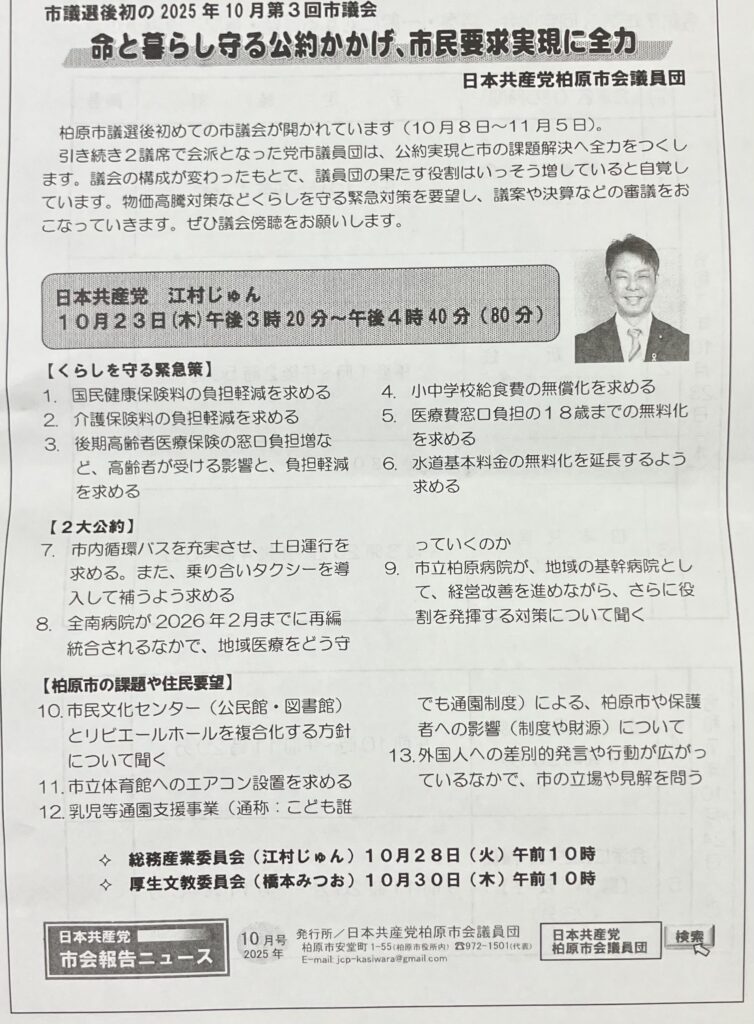 市議選後初の2025年10月第3回市議会
命と暮らし守る公約かかげ、市民要求実現に全力
日本共産党柏原市会議員団
柏原市議選後初めての市議会が開かれています(10月8日~11月5日)。
引き続き2議席で会派となった党市議員団は、公約実現と市の課題解決へ全力をつくし
ます。議会の構成が変わったもとで、議員団の果たす役割はいっそう増していると自覚し
ています。物価高騰対策などくらしを守る緊急対策を要望し、議案や決算などの審議をお
こなっていきます。ぜひ議会傍聴をお願いします。
日本共産党 江村じゅん
10月23日(木)午後3時20分~午後4時40分(80分)
【くらしを守る緊急策】
1. 国民健康保険料の負担軽減を求める
2. 介護保険料の負担軽減を求める
3. 後期高齢者医療保険の窓口負担増な
ど、高齢者が受ける影響と、負担軽減
を求める
4. 小中学校給食費の無償化を求める
5. 医療費窓口負担の18歳までの無料化
を求める
6. 水道基本料金の無料化を延長するよう
求める
【2大公約】
7. 市内循環バスを充実させ、土日運行を
求める。また、乗り合いタクシーを導
入して補うよう求める
8. 全南病院が2026年2月までに再編
統合されるなかで、地域医療をどう守
っていくのか
9. 市立柏原病院が、地域の基幹病院とし
て、経営改善を進めながら、さらに役
割を発揮する対策について聞く
【柏原市の課題や住民要望】
10. 市民文化センター(公民館・図書館)
とリビエールホールを複合化する方針
について聞く
11. 市立体育館へのエアコン設置を求める
12. 乳児等通園支援事業(通称:こども誰
でも通園制度)による、柏原市や保護
者への影響(制度や財源)について
13. 外国人への差別的発言や行動が広がっ
ているなかで、市の立場や見解を問う
✧ 総務産業委員会(江村じゅん)10月28日(火)午前10時
✧ 厚生文教委員会(橋本みつお)10月30日(木)午前10時
日本共産党
市会報告ニュース
10月号
2025年
発行所/日本共産党柏原市会議員団
柏原市安堂町1-55(柏原市役所内) ☎972-1501(代表)
E-mail: jcp-kasiwara@gmail.com
日本共産党
柏原市会議員団
検索